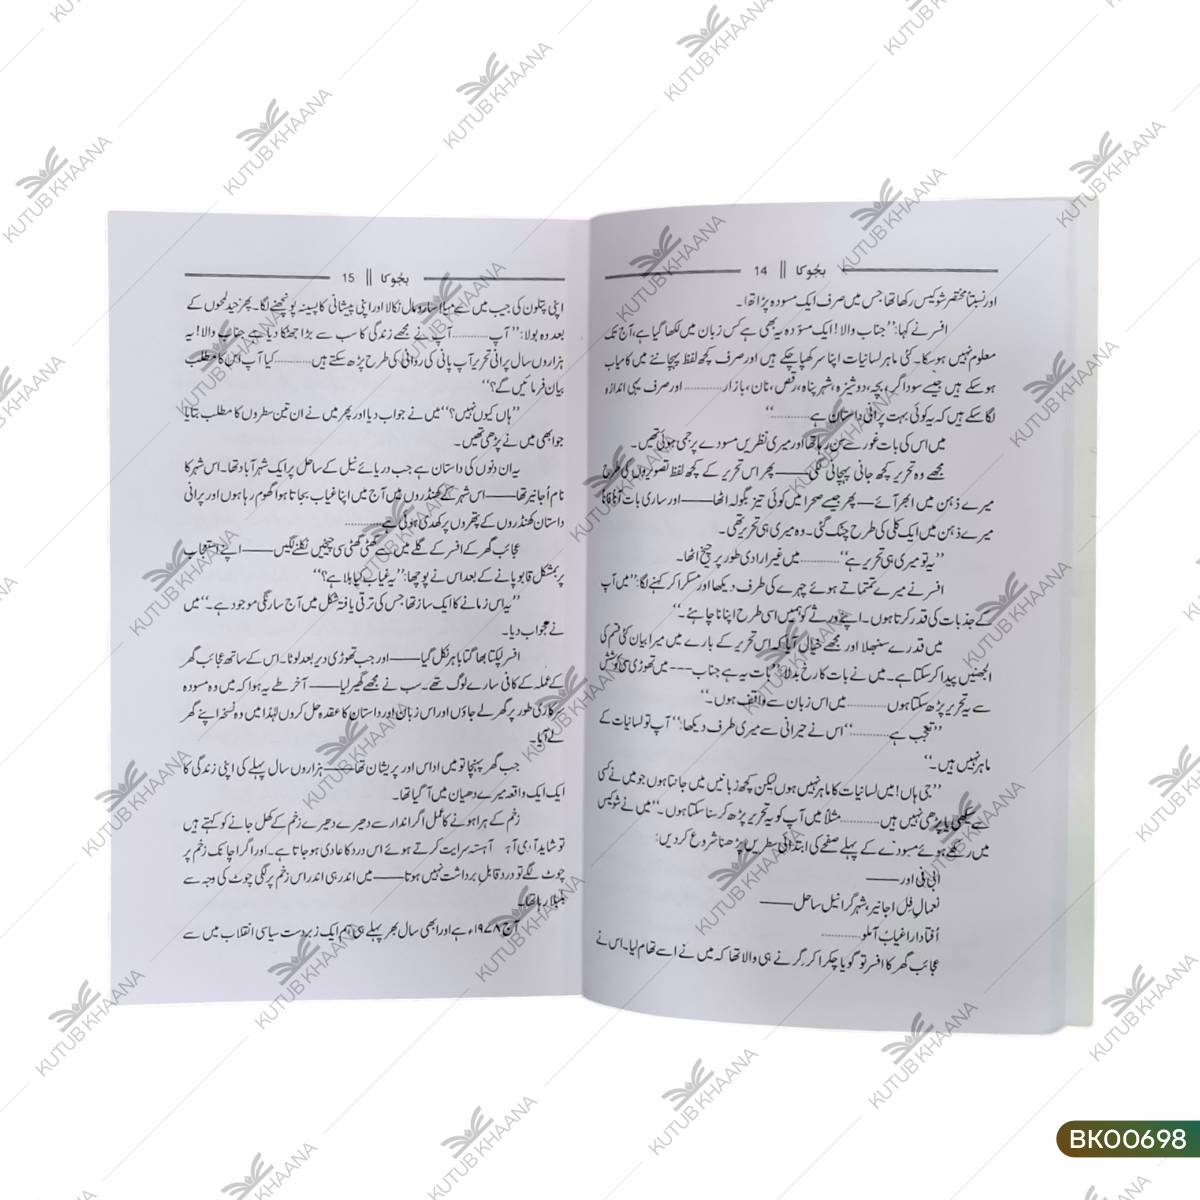 بجوکا || 14
اور نسبتاً مختصر شوکیس رکھا تھا جس میں صرف ایک مسودہ پڑا تھا۔
افسر نے کہا: ’’جناب والا! ایک مسودہ یہ بھی ہے کس زبان میں لکھا گیا ہے، آج تک
معلوم نہیں ہو سکا۔ کئی ماہر لسانیات اپنا سر کھپا چکے ہیں اور صرف کچھ لفظ پہچاننے میں کامیاب
ہو سکے ہیں جیسے سوداگر، بچہ، دوشیزہ، شہر پناہ، رقص، نان، بازار............ اور صرف یہی اندازہ
لگا سکے ہیں کہ یہ کوئی بہت پرانی داستان ہے............‘‘
میں اس کی بات غور سے سن رہا تھا اور میری نظریں مسودے پر جمی ہوئی تھیں۔
مجھے وہ تحریر کچھ جانی پہچانی لگی—— پھر اس تحریر کے کچھ لفظ تصویروں کی طرح
میرے ذہن میں ابھر آئے—— پھر جیسے صحرا میں کوئی تیز بگولہ اٹھا—— اور ساری بات آناً فاناً
میرے ذہن میں ایک کلی کی طرح چٹک گئی۔ وہ میری ہی تحریر تھی۔
’’یہ تو میری ہی تحریر ہے‘‘............ میں غیر ارادی طور پر چیخ اٹھا۔
افسر نے میرے تمتماتے ہوئے چہرے کی طرف دیکھا اور مسکرا کر کہنے لگا: ’’میں آپ
کے جذبات کی قدر کرتا ہوں۔ اپنے ورثے کو ہمیں اسی طرح اپنانا چاہئے۔‘‘
میں قدرے سنبھلا اور مجھے خیال آیا کہ اس تحریر کے بارے میں میرا بیان کئی قسم کی
الجھنیں پیدا کر سکتا ہے۔ میں نے بات کا رخ بدلا: ’’بات یہ ہے جناب--- میں تھوڑی سی کوشش
سے یہ تحریر پڑھ سکتا ہوں............ میں اس زبان سے واقف ہوں۔‘‘
’’تعجب ہے............‘‘ اس نے حیرانی سے میری طرف دیکھا: ’’آپ تو لسانیات کے
ماہر نہیں ہیں۔‘‘
’’جی ہاں! میں لسانیات کا ماہر نہیں ہوں لیکن کچھ زبانیں میں جانتا ہوں جو میں نے کسی
سے سیکھی یا پڑھی نہیں ہیں............ مثلاً میں آپ کو یہ تحریر پڑھ کر سنا سکتا ہوں۔‘‘ میں نے شوکیس
میں رکھے ہوئے مسودے کے پہلے صفحے کی ابتدائی سطریں پڑھنا شروع کر دیں:
الٰی فی اور——
نعمال فِل اجانیر، شہر گرانیل ساحل——
اُفتادارا غیابُ آملو............
عجائب گھر کا افسر تو گویا چکرا کر گرنے ہی والا تھا کہ میں نے اسے تھام لیا۔ اس نے
بجوکا || 15
اپنی پتلون کی جیب میں سے میلا سا رومال نکالا اور اپنی پیشانی کا پسینہ پونچھنے لگا۔ پھر چند لمحوں کے
بعد وہ بولا: ’’آپ............ آپ نے مجھے زندگی کا سب سے بڑا جھٹکا دیا ہے جناب والا! یہ
ہزاروں سال پرانی تحریر آپ پانی کی روانی کی طرح پڑھ سکتے ہیں............ کیا آپ اس کا مطلب
بیان فرمائیں گے؟‘‘
’’ہاں کیوں نہیں؟‘‘ میں نے جواب دیا اور پھر میں نے ان تین سطروں کا مطلب بتایا
جو ابھی میں نے پڑھی تھیں۔
یہ ان دنوں کی داستان ہے جب دریائے نیل کے ساحل پر ایک شہر آباد تھا۔ اس شہر کا
نام اُجانیر تھا—— اس شہر کے کھنڈروں میں آج میں اپنا غیاب بجاتا ہوا گھوم رہا ہوں اور پرانی
داستان کھنڈروں کے پتھروں پر کھدی ہوئی ہے............
عجائب گھر کے افسر کے گلے میں سے گھٹی گھٹی سی چیخیں نکلنے لگیں—— اپنے استعجاب
پر بمشکل قابو پانے کے بعد اس نے پوچھا: ’’یہ غیاب کیا بلا ہے؟‘‘
’’یہ اس زمانے کا ایک ساز تھا جس کی ترقی یافتہ شکل میں آج سارنگی موجود ہے۔‘‘ میں
نے جواب دیا۔
افسر لپکتا بھاگتا باہر نکل گیا—— اور جب تھوڑی دیر بعد لوٹا۔ اس کے ساتھ عجائب گھر
کے عملہ کے کافی سارے لوگ تھے۔ سب نے مجھے گھیر لیا—— آخر طے یہ ہوا کہ میں وہ مسودہ
سرکاری طور پر گھر لے جاؤں اور اس زبان اور داستان کا عقدہ حل کروں لہٰذا میں وہ نسخہ اپنے گھر
لے آیا۔
جب گھر پہنچا تو میں اداس اور پریشان تھا—— ہزاروں سال پہلے کی اپنی زندگی کا
ایک ایک واقعہ میرے دھیان میں آ گیا تھا۔
زخم کے ہرا ہونے کا عمل اگر اندر سے دھیرے دھیرے زخم کے کھل جانے کو کہتے ہیں
تو شاید آدمی آہستہ آہستہ سرایت کرتے ہوئے اس درد کا عادی ہو جاتا ہے۔ اور اگر اچانک زخم پر
چوٹ لگے تو درد قابل برداشت نہیں ہوتا—— میں اندر ہی اندر اس زخم پر لگی چوٹ کی وجہ سے
بلبلا رہا تھا۔
آج ۱۹۷۸ء ہے اور ابھی سال بھر پہلے ہی ہم ایک زبردست سیاسی انقلاب میں سے
KUTUB KHAANA
BK00698